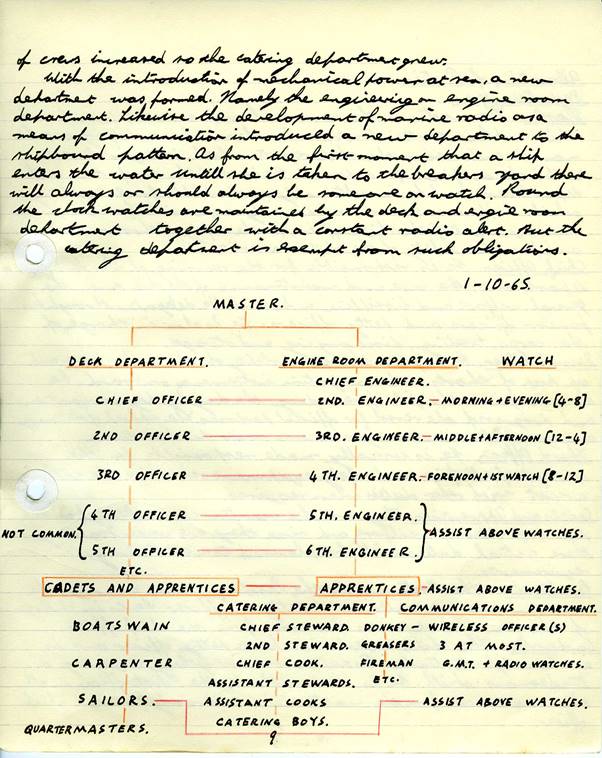 of crews increased so the catering department grew.
With the introduction of mechanical power at sea, a new
department was formed. Namely the engineering or engine room
department. Likewise the development of marine radio as a
means of communication introduced a new department to the
shipbound pattern. As from the first moment that a ship
enters the water untill she is taken to the breakers yard there
will always or should always be someone on watch. Round
the clock watches are maintained by the deck and engine room
department together with a constant radio alert. But the
catering department is exempt from such obligations.
1-10-65.
MASTER.
DECK DEPARTMENT. ENGINE ROOM DEPARTMENT. WATCH
CHIEF ENGINEER.
CHIEF OFFICER 2ND. ENGINEER. MORNING + EVENING [4-8]
2ND OFFICER 3RD. ENGINEER. MIDDLE + AFTERNOON [12-4]
3RD OFFICER 4TH. ENGINEER. FORENOON + 1ST WATCH [8-12]
4TH OFFICER 5TH. ENGINEER.
NOT COMMON. ASSIST ABOVE WATCHES.
5TH OFFICER 6TH. ENGINEER.
ETC.
CADETS AND APPRENTICES APPRENTICES. ASSIST ABOVE WATCHES.
CATERING DEPARTMENT. COMMUNICATIONS DEPARTMENT.
BOATSWAIN CHIEF STEWARD. DONKEY – WIRELESS OFFICER(S)
2ND STEWARD. GREASERS 3 AT MOST.
CARPENTER CHIEF COOK. FIREMAN G.M.T. + RADIO WATCHES.
ASSISTANT STEWARDS. ETC.
SAILORS. ASSISTANT COOKS ASSIST ABOVE WATCHES.
CATERING BOYS.
QUARTERMASTERS.
9